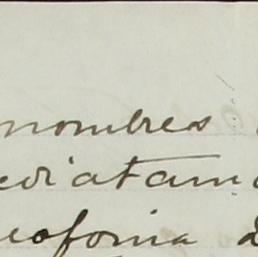 nombres
ediatam
eofonia